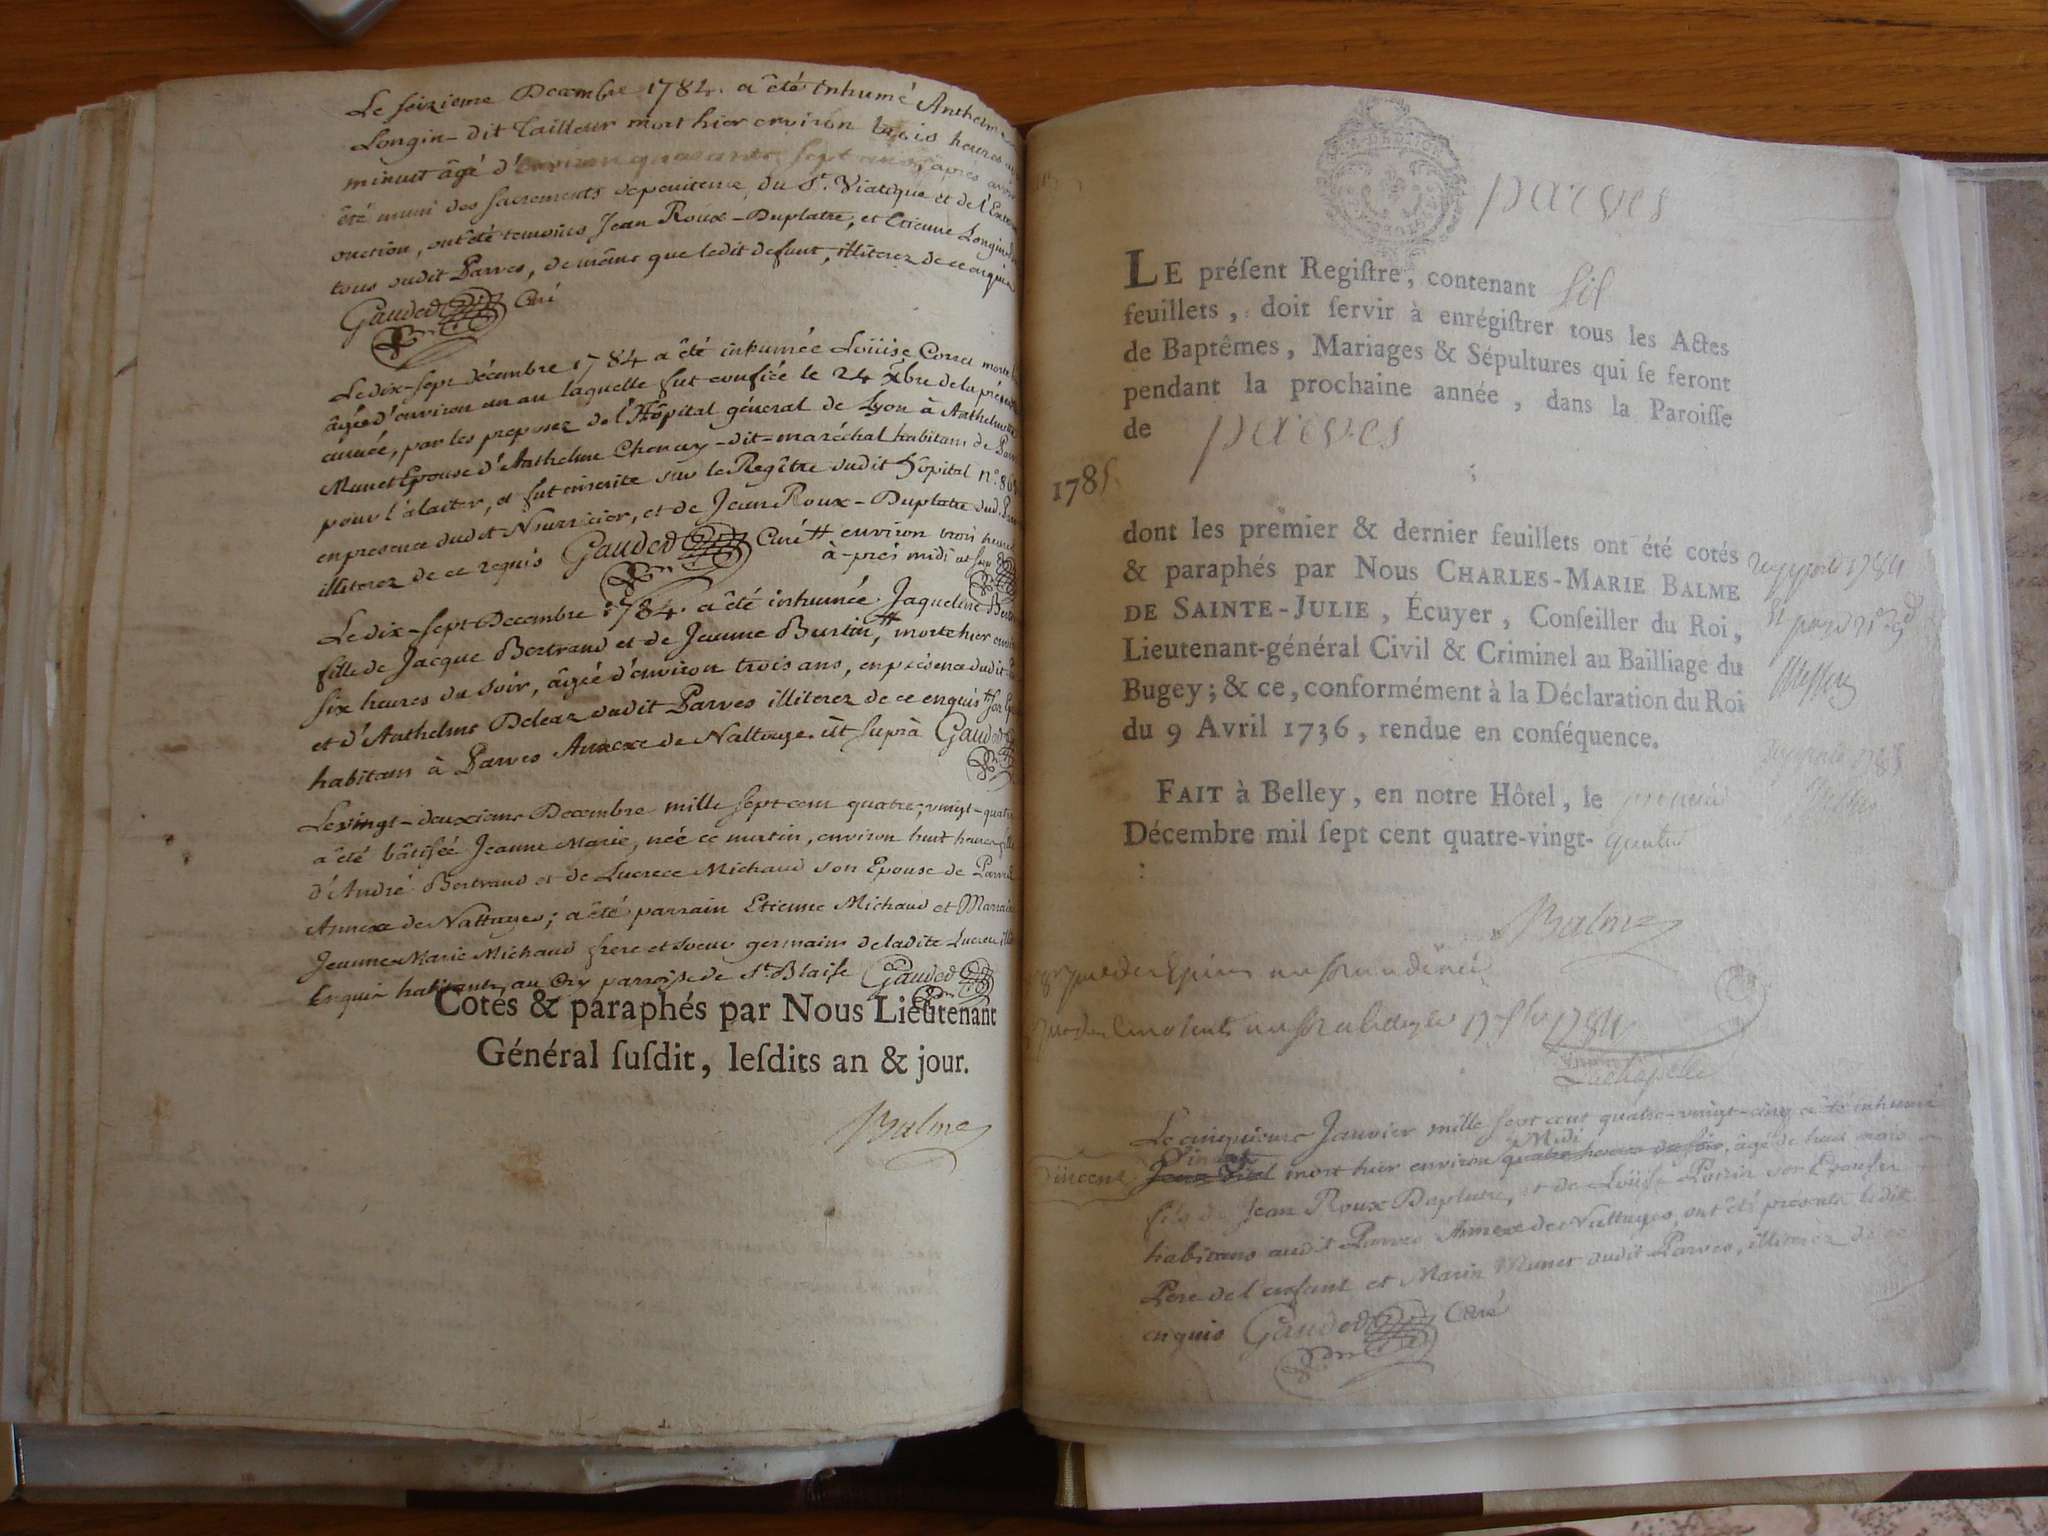 Le seizieme Decembre 1784. a êté inhumé Anthelme
Longin-dit Tailleur mort hier environ trois heures
minuit âgé d'environ quarante sept ans, apres avoir
êté muni des sacrements de penitence du St. Viatique et de l'Extr
onction, ont êté temoins Jean Roux-Duplatre, et Etienne Longin
tous dudit Parves, de même que ledit defunt, illiterez de ce enquis
Gauded Curé
Le dix-sept décembre 1784 a êté inhumée Loüise Corra morte
âgée d'environ un an laquelle fut confiée le 24 xbre de la présente
année, par les preposez de l'Hôpital géneral de Lyon à Anthelmette
Munet Epouse d'Anthelme Chency-dit-maréchal habitans de Parv
pour l'alaiter, et fut inscrite sur le Regître dudit Hôpital n°. 86
en presence dudit Nourricier, et de Jean Roux-Duplatre dud. Par
illiterez de ce requis Gauded Curé # environ trois heures
à-près midi
Le dix-sept Decembre 1784. a êté inhumée Jaqueline Bert
fille de Jacque Bertrand et de Jeanne Burtin #, morte hier envir
six heures du soir, âgée d'environ trois ans, en présence dudit
et d'Anthelme Deleaz dudit Parves illiterez de ce enquis # son Ep
habitans à Parves Annexe de Nattage. ût suprà Gauded
Le vingt-deuxieme Decembre mille sept cent quatre-vingt-quatre
a êté bâtisée Jeanne Marie, née ce matin, environ huit heures fille
d'André Bertrand et de Lucrece Michaud son Epouse de Parves
Annexe de Nattages; a êté parrain Etienne Michaud et Marraine
Jeanne Marie Michaud frere et soeur germains de ladite Lucrece ill
Enquis habitants au parroisse de St. Blaise Gauded
Cotés & paraphés par Nous Lieutenant
Général ſuſdit, leſdits an & jour.
Balme
parves
LE préſent Regiſtre, contenant ſix
feuillets, doit ſervir à enrégiſtrer tous les Actes
de Baptêmes, Mariages & Sépultures qui ſe feront
pendant la prochaine année, dans la Paroiſſe
de parves
1785
dont les premier & dernier feuillets ont été cotés
& paraphés par Nous CHARLES-MARIE BALME
DE SAINTE-JULIE, Écuyer, Conſeiller du Roi,
Lieutenant-général Civil & Criminel au Bailliage du
Bugey; & ce, conformément à la Déclaration du Roi
du 9 Avril 1736, rendue en conſéquence.
FAIT à Belley, en notre Hôtel, le premier
Décembre mil ſept cent quatre-vingt-quatre
Balme
1784
Lachapelle
Le cinquieme Janvier mille sept cent quatre-vingt-cinq a êté inhumé
Midi
Vincent Jean mort hier environ quatre heures du soir, âgé de huit mois
fils de Jean Roux Duplatre, et de Loüise Perrin son Epouse
habitans audit Parves Annexe de Nattages, ont êté presents ledit
Pere de l'enfant et Marin Munet dudit Parves, illiterez de ce
enquis Gauded Curé